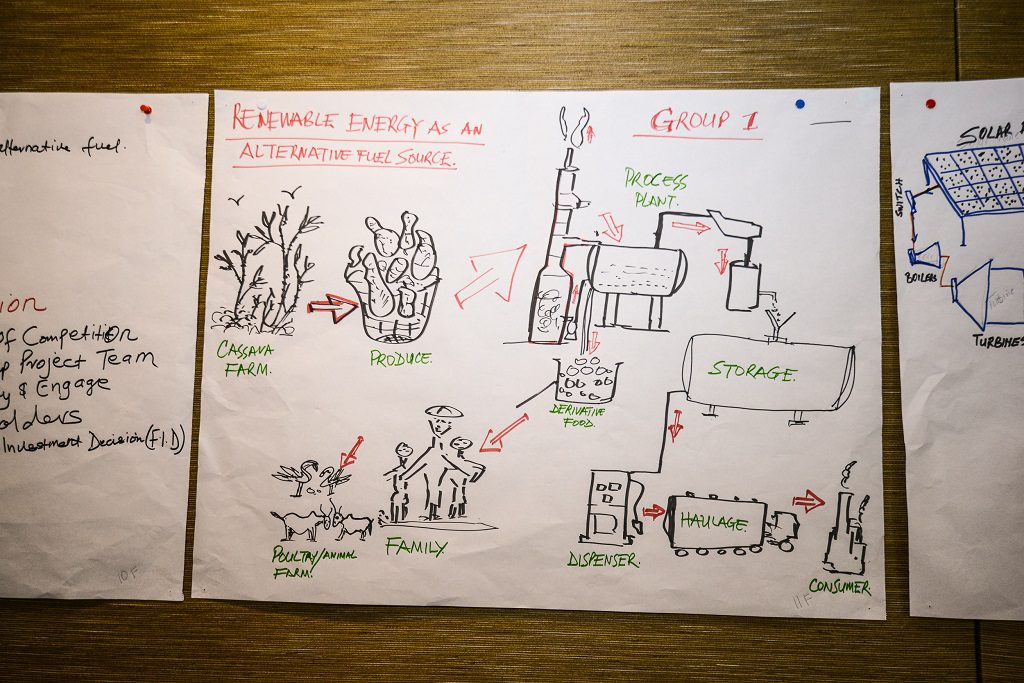 alternative fuel.
ion
of Competition
p Project Team
y & Engage
olders
Investment Decision (F.I.D)
10 F
RENEWABLE ENERGY AS AN
ALTERNATIVE FUEL SOURCE.
GROUP 1
PROCESS
PLANT.
CASSAVA
FARM.
PRODUCE.
STORAGE.
DERIVATIVE
FOOD.
POULTRY/ANIMAL
FARM.
FAMILY
DISPENSER.
HAULAGE
CONSUMER.
11F
SOLAR
SWITCH
BOILERS
Turbine
TURBINES